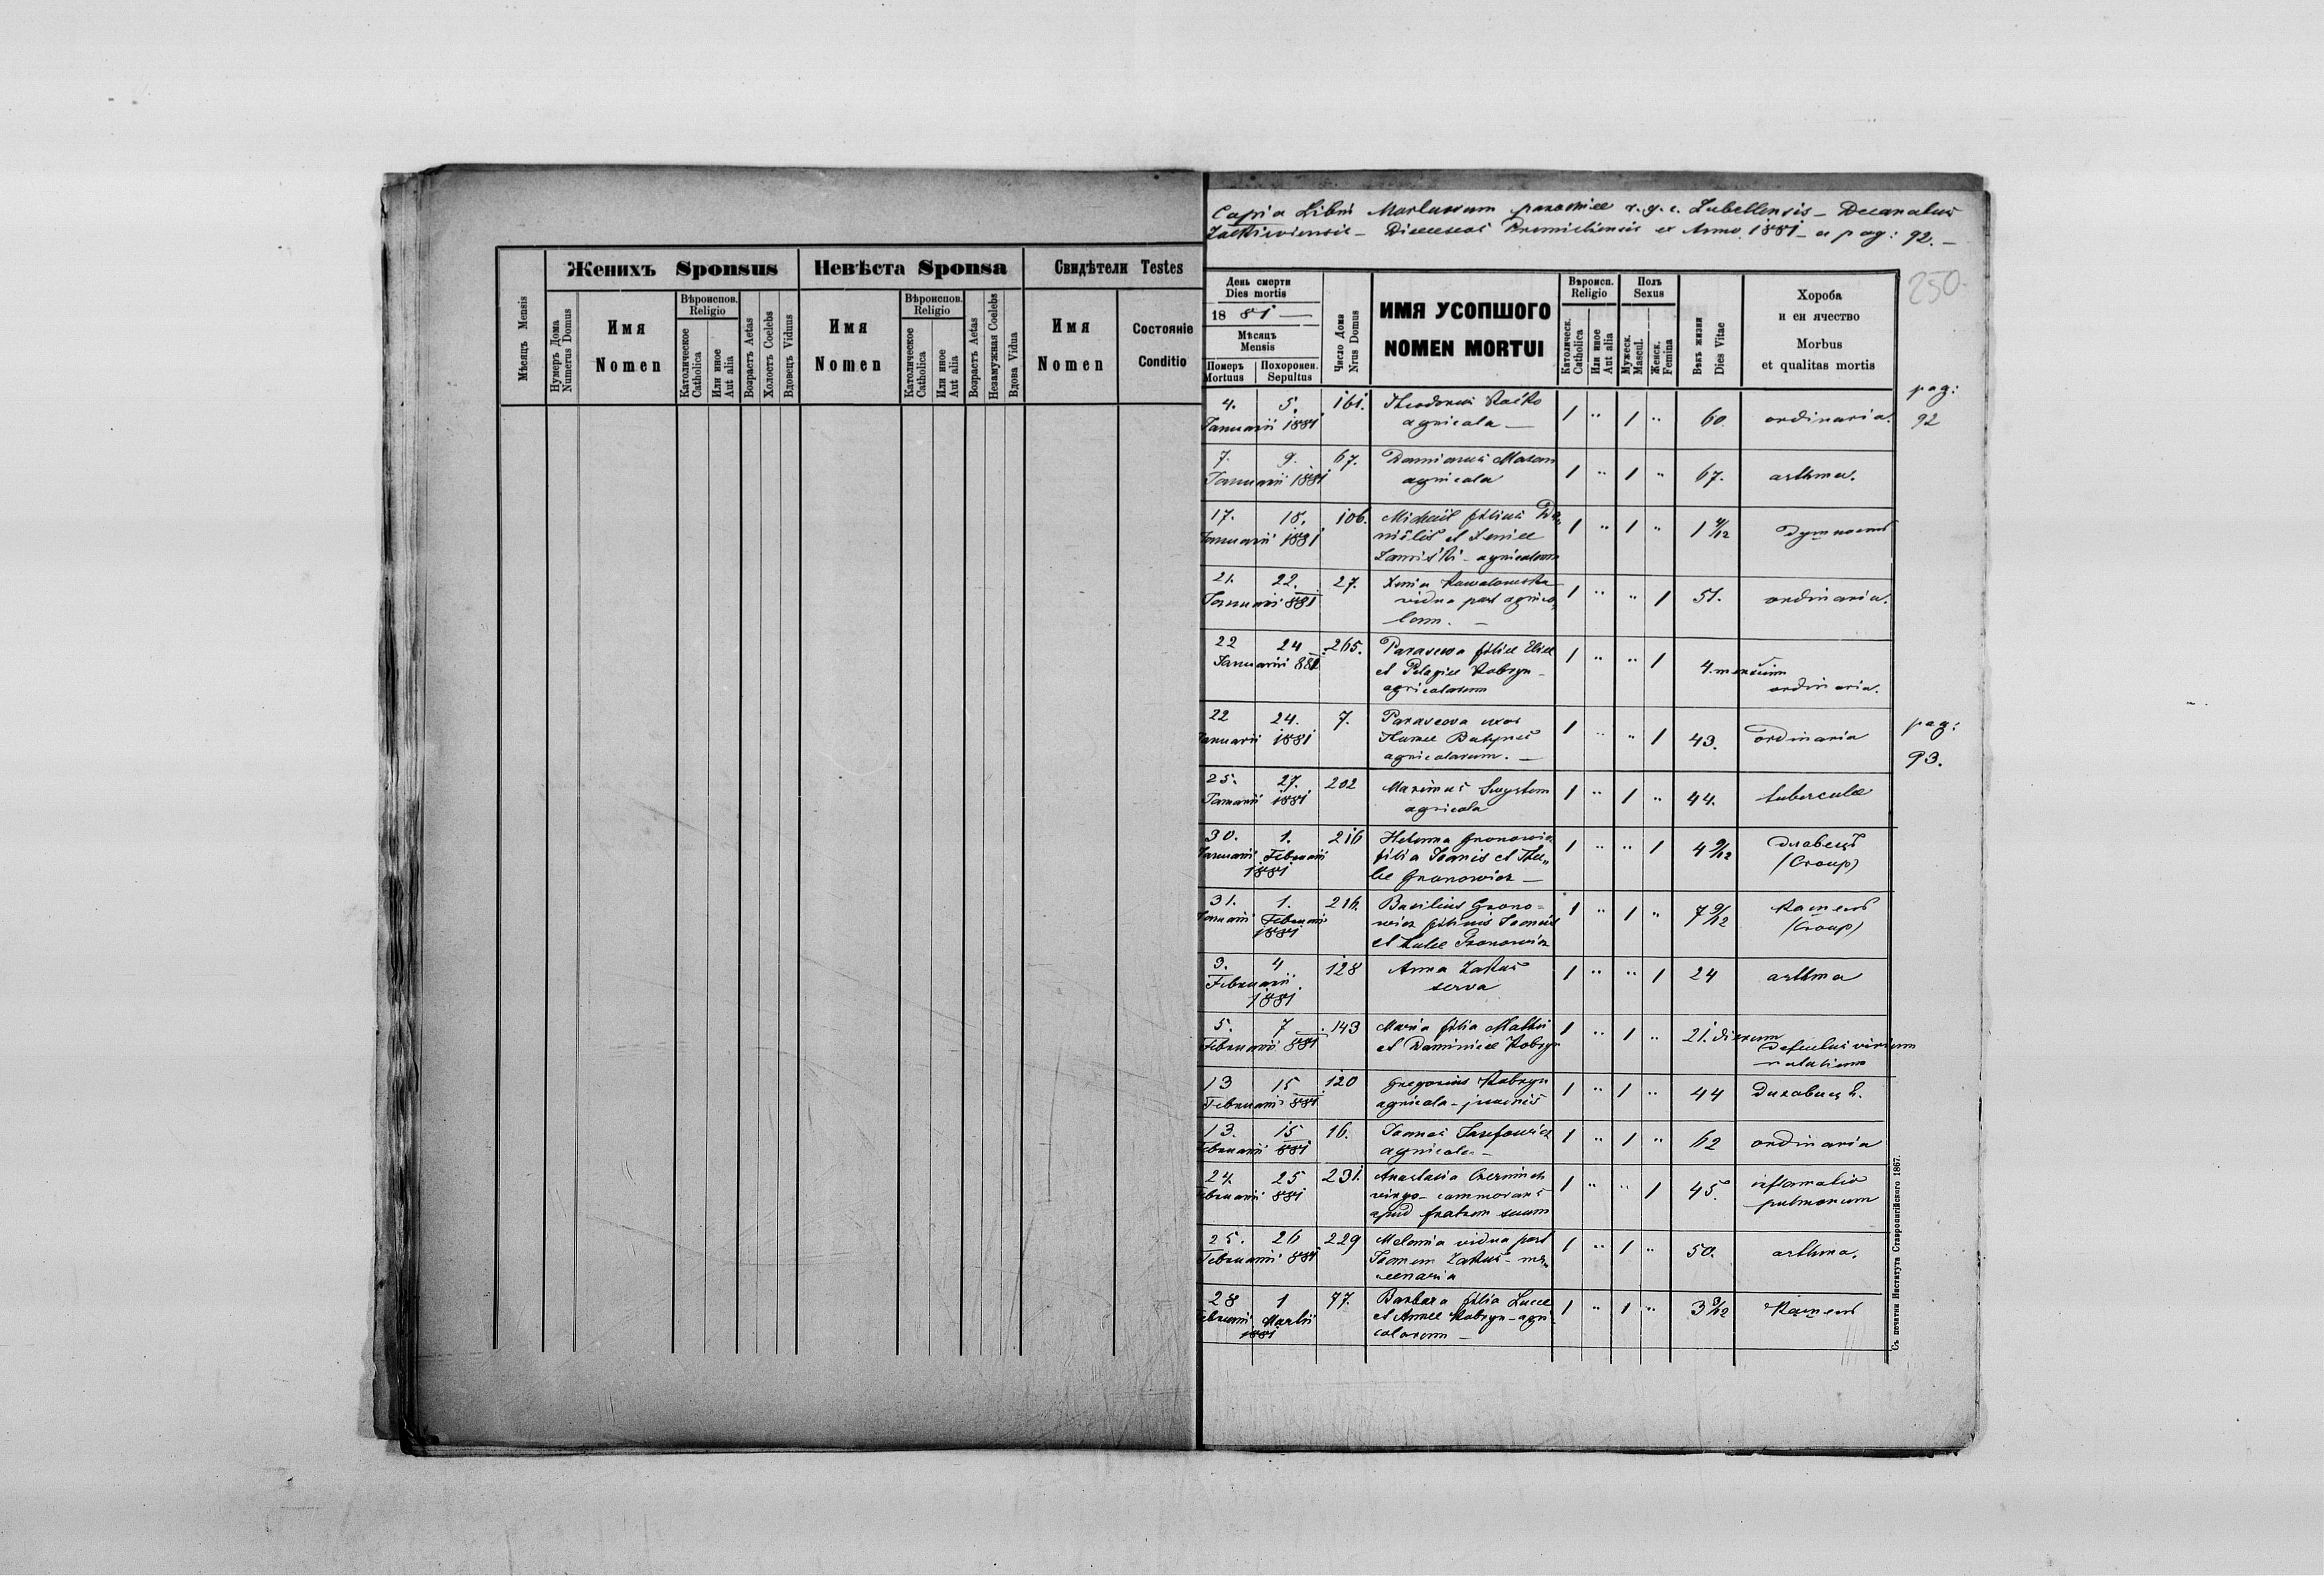 Женихъ Sponsus
Невѣста Sponsa
Свидѣтели Testes
Мѣсяцъ Mensis
Нумеръ Дома
Numerus Domus
Имя
Nomen
Вѣроиспов.
Religio
Католическое
Catholica
Или иное
Aut alia
Возрастъ Aetas
Холостъ Coelebs
Вдовецъ Viduus
Имя
Nomen
Вѣроиспов.
Religio
Католическое
Catholica
Или иное
Aut alia
Возрастъ Aetas
Незамужная Coelebs
Вдова Vidua
Имя
Nomen
Состояніе
Conditio
Copia Libri Mortuorum parochiae r. g. c. Lubellensis – Decanatus
Żółkiewiensis – Dioeceseos Premisliensis ex Anno 1881 – a pag: 92. –
250.
День смерти
Dies mortis
18 81 —
Мѣсяцъ
Mensis
Померъ
Mortuus
Похоронен.
Sepultus
Число Дома
Nrus Domus
ИМЯ УСОПШОГО
NOMEN MORTUI
Вѣроисп.
Religio
Католическ.
Catholica
Или иное
Aut alia
Полъ
Sexus
Мужеск.
Mascul.
Женск.
Femina
Вѣкъ жизни
Dies Vitae
Хороба
и еи ячество
Morbus
et qualitas mortis
pag:
92
4. 5. 161. Theodorus 1 " 1 " 60 ordinaria.
Januarii 1881 agricola —
7. 9. 67. Damianus Mazan 1 " 1 " 67. asthma.
Januarii 1881 agricola
17. 18. 106. Michael filius Da„ 1 " 1 " 1 4/12
Januarii 1881 niëlis et Xeniae
agricolarum
21. 22. 27. Xenia 1 " " 1 51. ordinaria.
Januarii 881 vidua post agrico„
lam. –
22 24 265. Parascewa filia Eliae 1 " " 1 4. mensium
Januarii 881 et Pelagiae Kobryn – ordinaria.
agricolarum
22 24. 7. Parascewa uxor 1 " " 1 43. ordinaria
Januarii 1881 agricolarum. —
pag:
93.
25. 27. 202 Maximus 1 " 1 " 44. tubercula
Januarii 1881 agricola
30. 1. 216 Helena Gronowicz 1 " " 1 4 9/12
Januarii Februarii filia Joanis et (Croup)
1881 Gronowicz —
31. 1. 216. Basilius Grono= 1 " 1 " 7 9/12 Кашель
Januarii Februarii wicz filius Joannis (Croup)
1881 et Gronowicz
3. 4 128 Anna Żakus 1 " " 1 24 asthma
Februarii serva
1881
5. 7 143 Maria filia Matthei 1 " 1 " 21. dierum
Februarii 881 et Dominicae Kobryn defectus virium
13 15 120 Gregorius Kobryn 1 " 1 " 44
Februarii 881 agricola – juvenis
13. 15 16. Joannes Jozefowicz 1 " 1 " 62 ordinaria
Februarii 881 agricola –
24. 25 231. Anastasia 1 " " 1 45. inflamatio
Februarii 881 virgo – commorans pulmonum
apud fratrem suum
25. 26 229 Melania vidua post 1 " 1 " 50. asthma.
Februarii 881 Joannem Żakus – mer„
cenaria
28 1 77. Barbara filia Lucae 1 " 1 " 3 9/12 Кашель
Februarii Martii et Annae Kobryn – agri
1881 colarum —
Съ печатни Института Ставропигійского 1867.